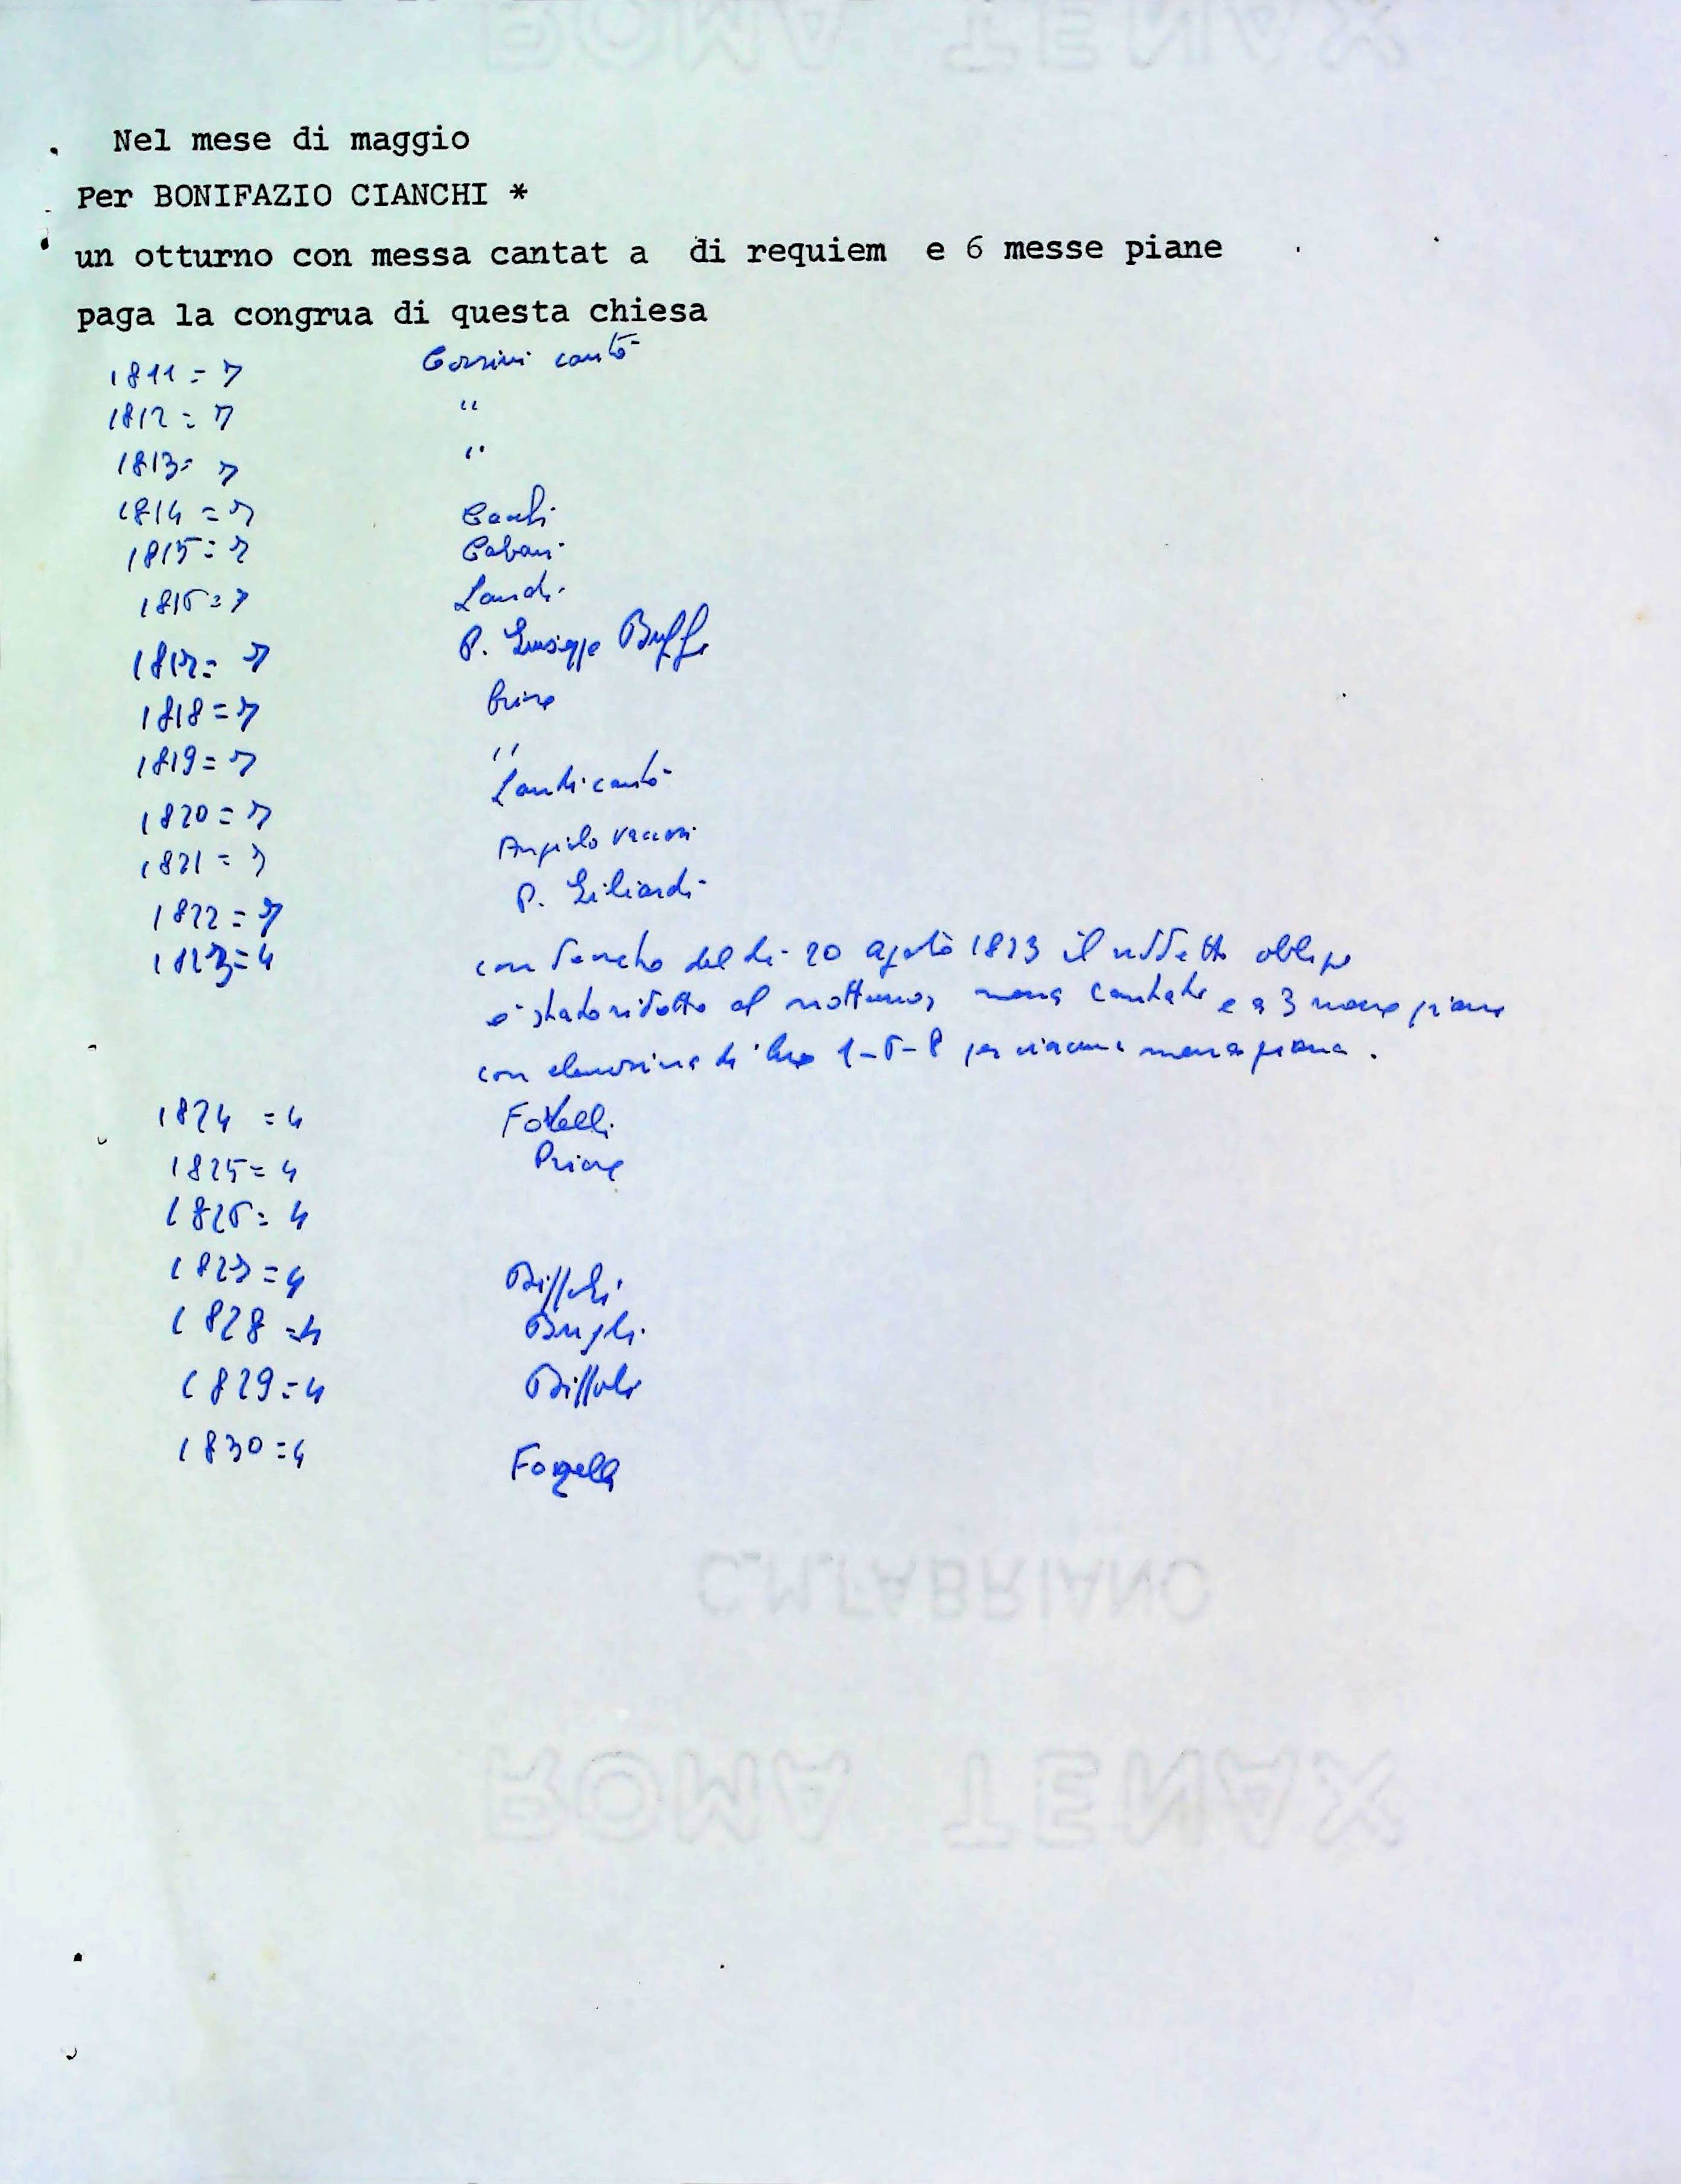 ROMA TENAX
Nel mese di maggio
Per BONIFAZIO CIANCHI *
un otturno con messa cantat a di requiem e 6 messe piane
paga la congrua di questa chiesa
1811 = 7 Corsini cantò
1812 = 7 "
1813 = 7 "
1814 = 7
1815 = 7
1816 = 7 Landi
1817 = 7 P. Giuseppe
1818 = 7
1819 = 7 "
Landi cantò
1820 = 7
1821 = 7 Angiolo
1822 = 7 P. Giliardi
1823 = 4 con del dì 20 agosto 1823 il obbligo
è stato ridotto al notturno, messa cantata e a 3 messe piane
con elemosina di lire 1-6-8 per ciascuna messa piana.
1824 = 4
1825 = 4 Priore
1826 = 4
1827 = 4 Biffoli
1828 = 4
1829 = 4 Biffoli
1830 = 4
C.M.FABRIANO
ROMA TENAX